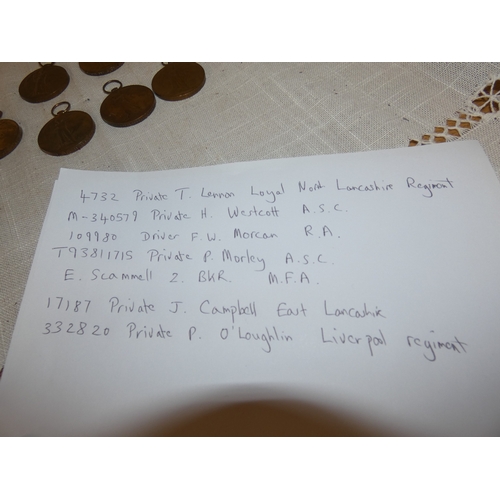 4732 Private T. Lennon Loyal North Lancashire Regiment
M-340579 Private H. Westcott A.S.C.
109980 Driver F.W. Morcan R.A.
T93811715 Private P. Morley A.S.C.
E. Scammell 2. BKR. M.F.A.
17187 Private J. Campbell East Lancashire
332820 Private P. O'Loughlin Liverpool regiment